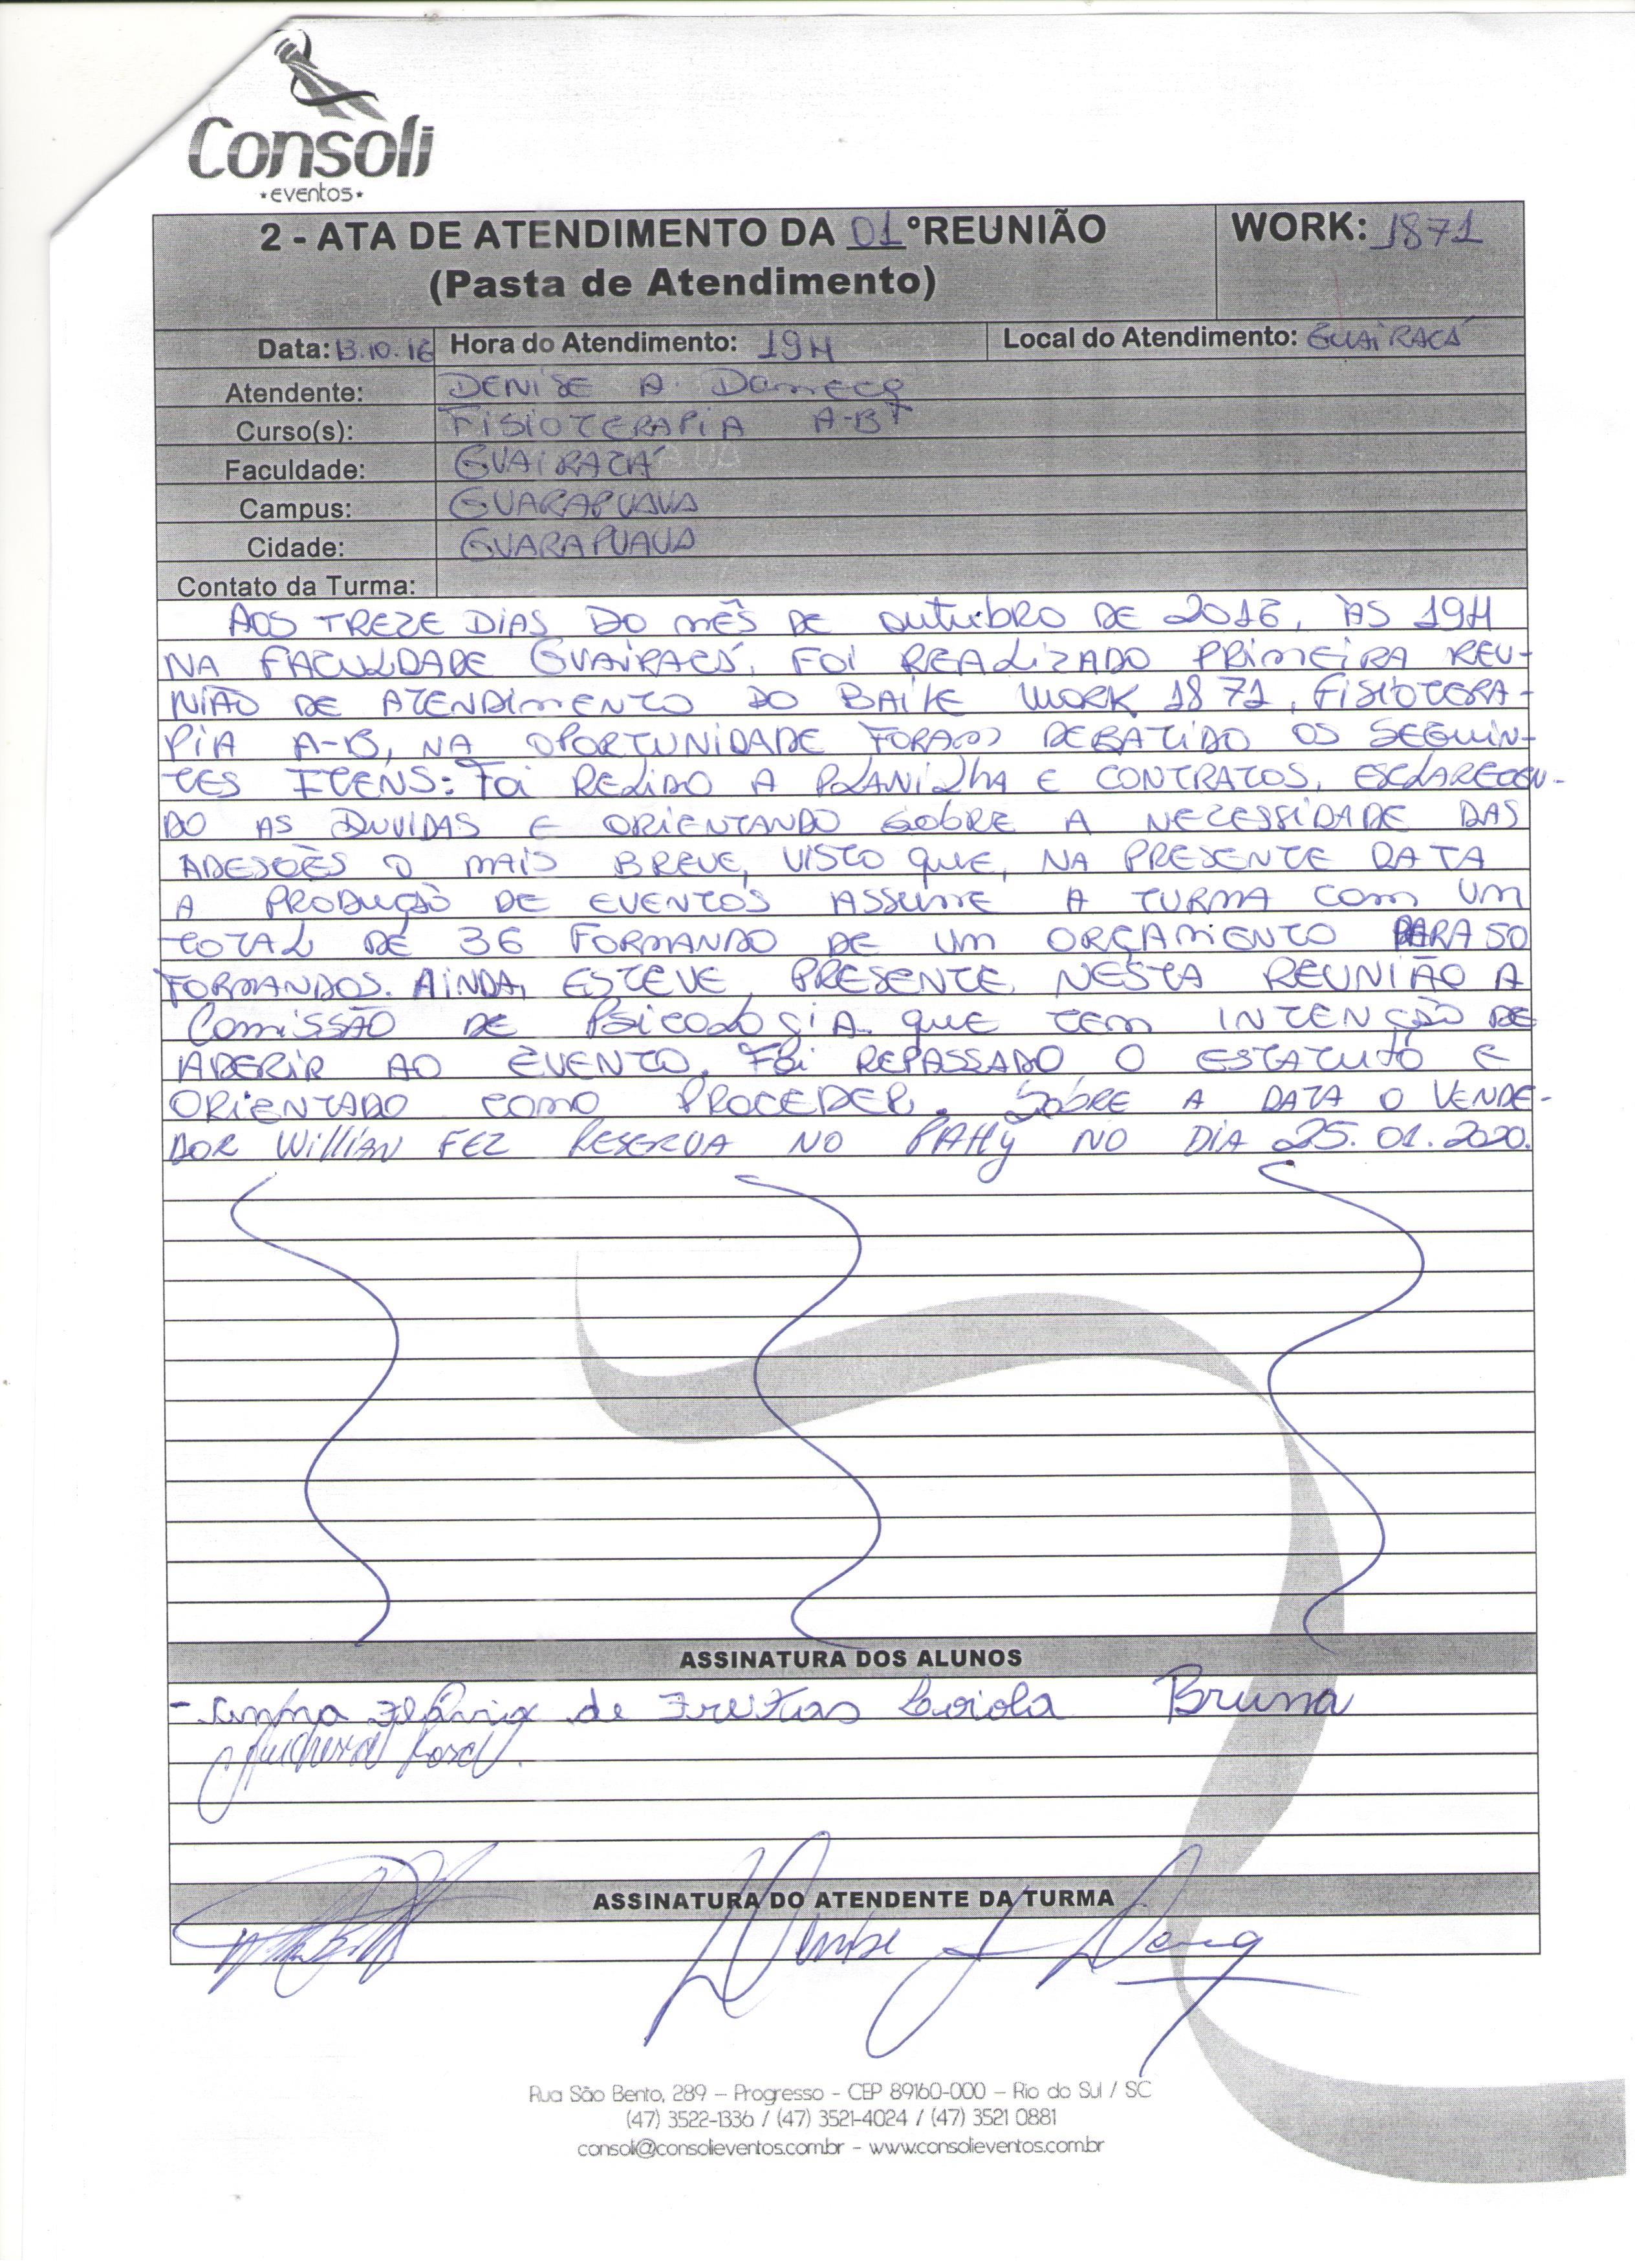 Consoli
eventos
2 - ATA DE ATENDIMENTO DA 01 ºREUNIÃO
(Pasta de Atendimento)
WORK: 1871
Data: 13.10.16 Hora do Atendimento: 19H Local do Atendimento: GUAIRACÁ
Atendente: DENISE A.
Curso(s): FISIOTERAPIA A-B
Faculdade: GUAIRACÁ
Campus: GUARAPUAVA
Cidade: GUARAPUAVA
Contato da Turma:
AOS TREZE DIAS DO MÊS DE OUTUBRO DE 2016, ÀS 19H
NA FACULDADE GUAIRACÁ, FOI REALIZADO PRIMEIRA REU-
NIÃO DE ATENDIMENTO DO BAILE WORK 1871, FISIOTERA-
PIA A-B, NA OPORTUNIDADE FORAM DEBATIDO OS SEGUIN-
TES ITENS: FOI RELIDO A PLANILHA E CONTRATOS, ESCLARECEN-
DO AS DUVIDAS E ORIENTANDO SOBRE A NECESSIDADE DAS
ADESOÊS O MAIS BREVE, VISTO QUE, NA PRESENTE DATA
A PRODUÇÃO DE EVENTOS ASSUME A TURMA COM UM
TOTAL DE 36 FORMANDO DE UM ORÇAMENTO PARA 50
FORMANDOS. AINDA, ESTEVE PRESENTE NESTA REUNIÃO A
COMISSÃO DE PSICOLOGIA QUE TEM INTENÇÃO DE
ADERIR AO EVENTO. FOI REPASSADO O ESTATUTO E
ORIENTADO COMO PROCEDER. SOBRE A DATA O VENDE-
DOR WILLIAN FEZ RESERVA NO PAHY NO DIA 25.01.2020.
ASSINATURA DOS ALUNOS
de Freitas Bruna
ASSINATURA DO ATENDENTE DA TURMA
Denise
Rua São Bento, 289 – Progresso - CEP 89160-000 – Rio do Sul / SC
(47) 3522-1336 / (47) 3521-4024 / (47) 3521 0881
consoli@consolieventos.com.br - www.consolieventos.com.br